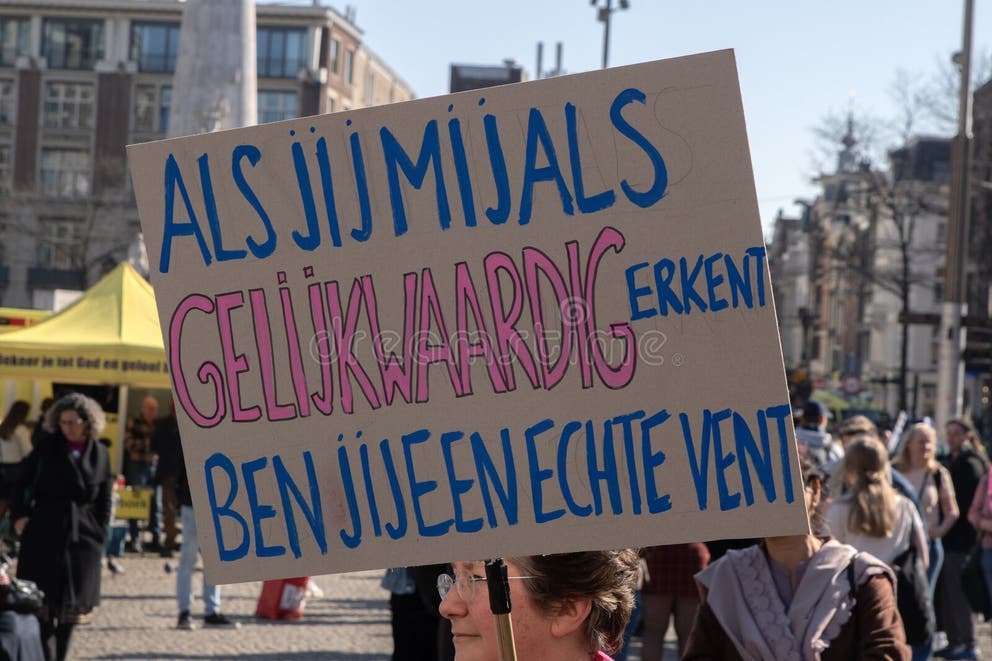 ALS JIJ MIJ ALS
GELIJKWAARDIG ERKENT
BEN JIJ EEN ECHTE VENT
dreamstime.com
Bekeer je tot God en geloof